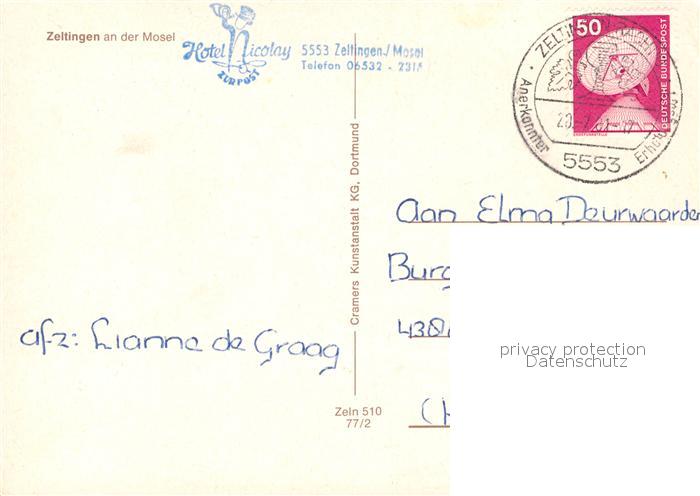 Zeltingen an der Mosel
Hotel Nicolay
zur Post
5553 Zeltingen/Mosel
Telefon 06532 -
50
DEUTSCHE BUNDESPOST
ERDEFUNKSTELLE
Anerkannter
5553
Cramers Kunstanstalt KG, Dortmund
Aan Elma Deurwaarder
Burg
438
afz: Lianne de Graag
privacy protection
Datenschutz
Zeln 510
77/2